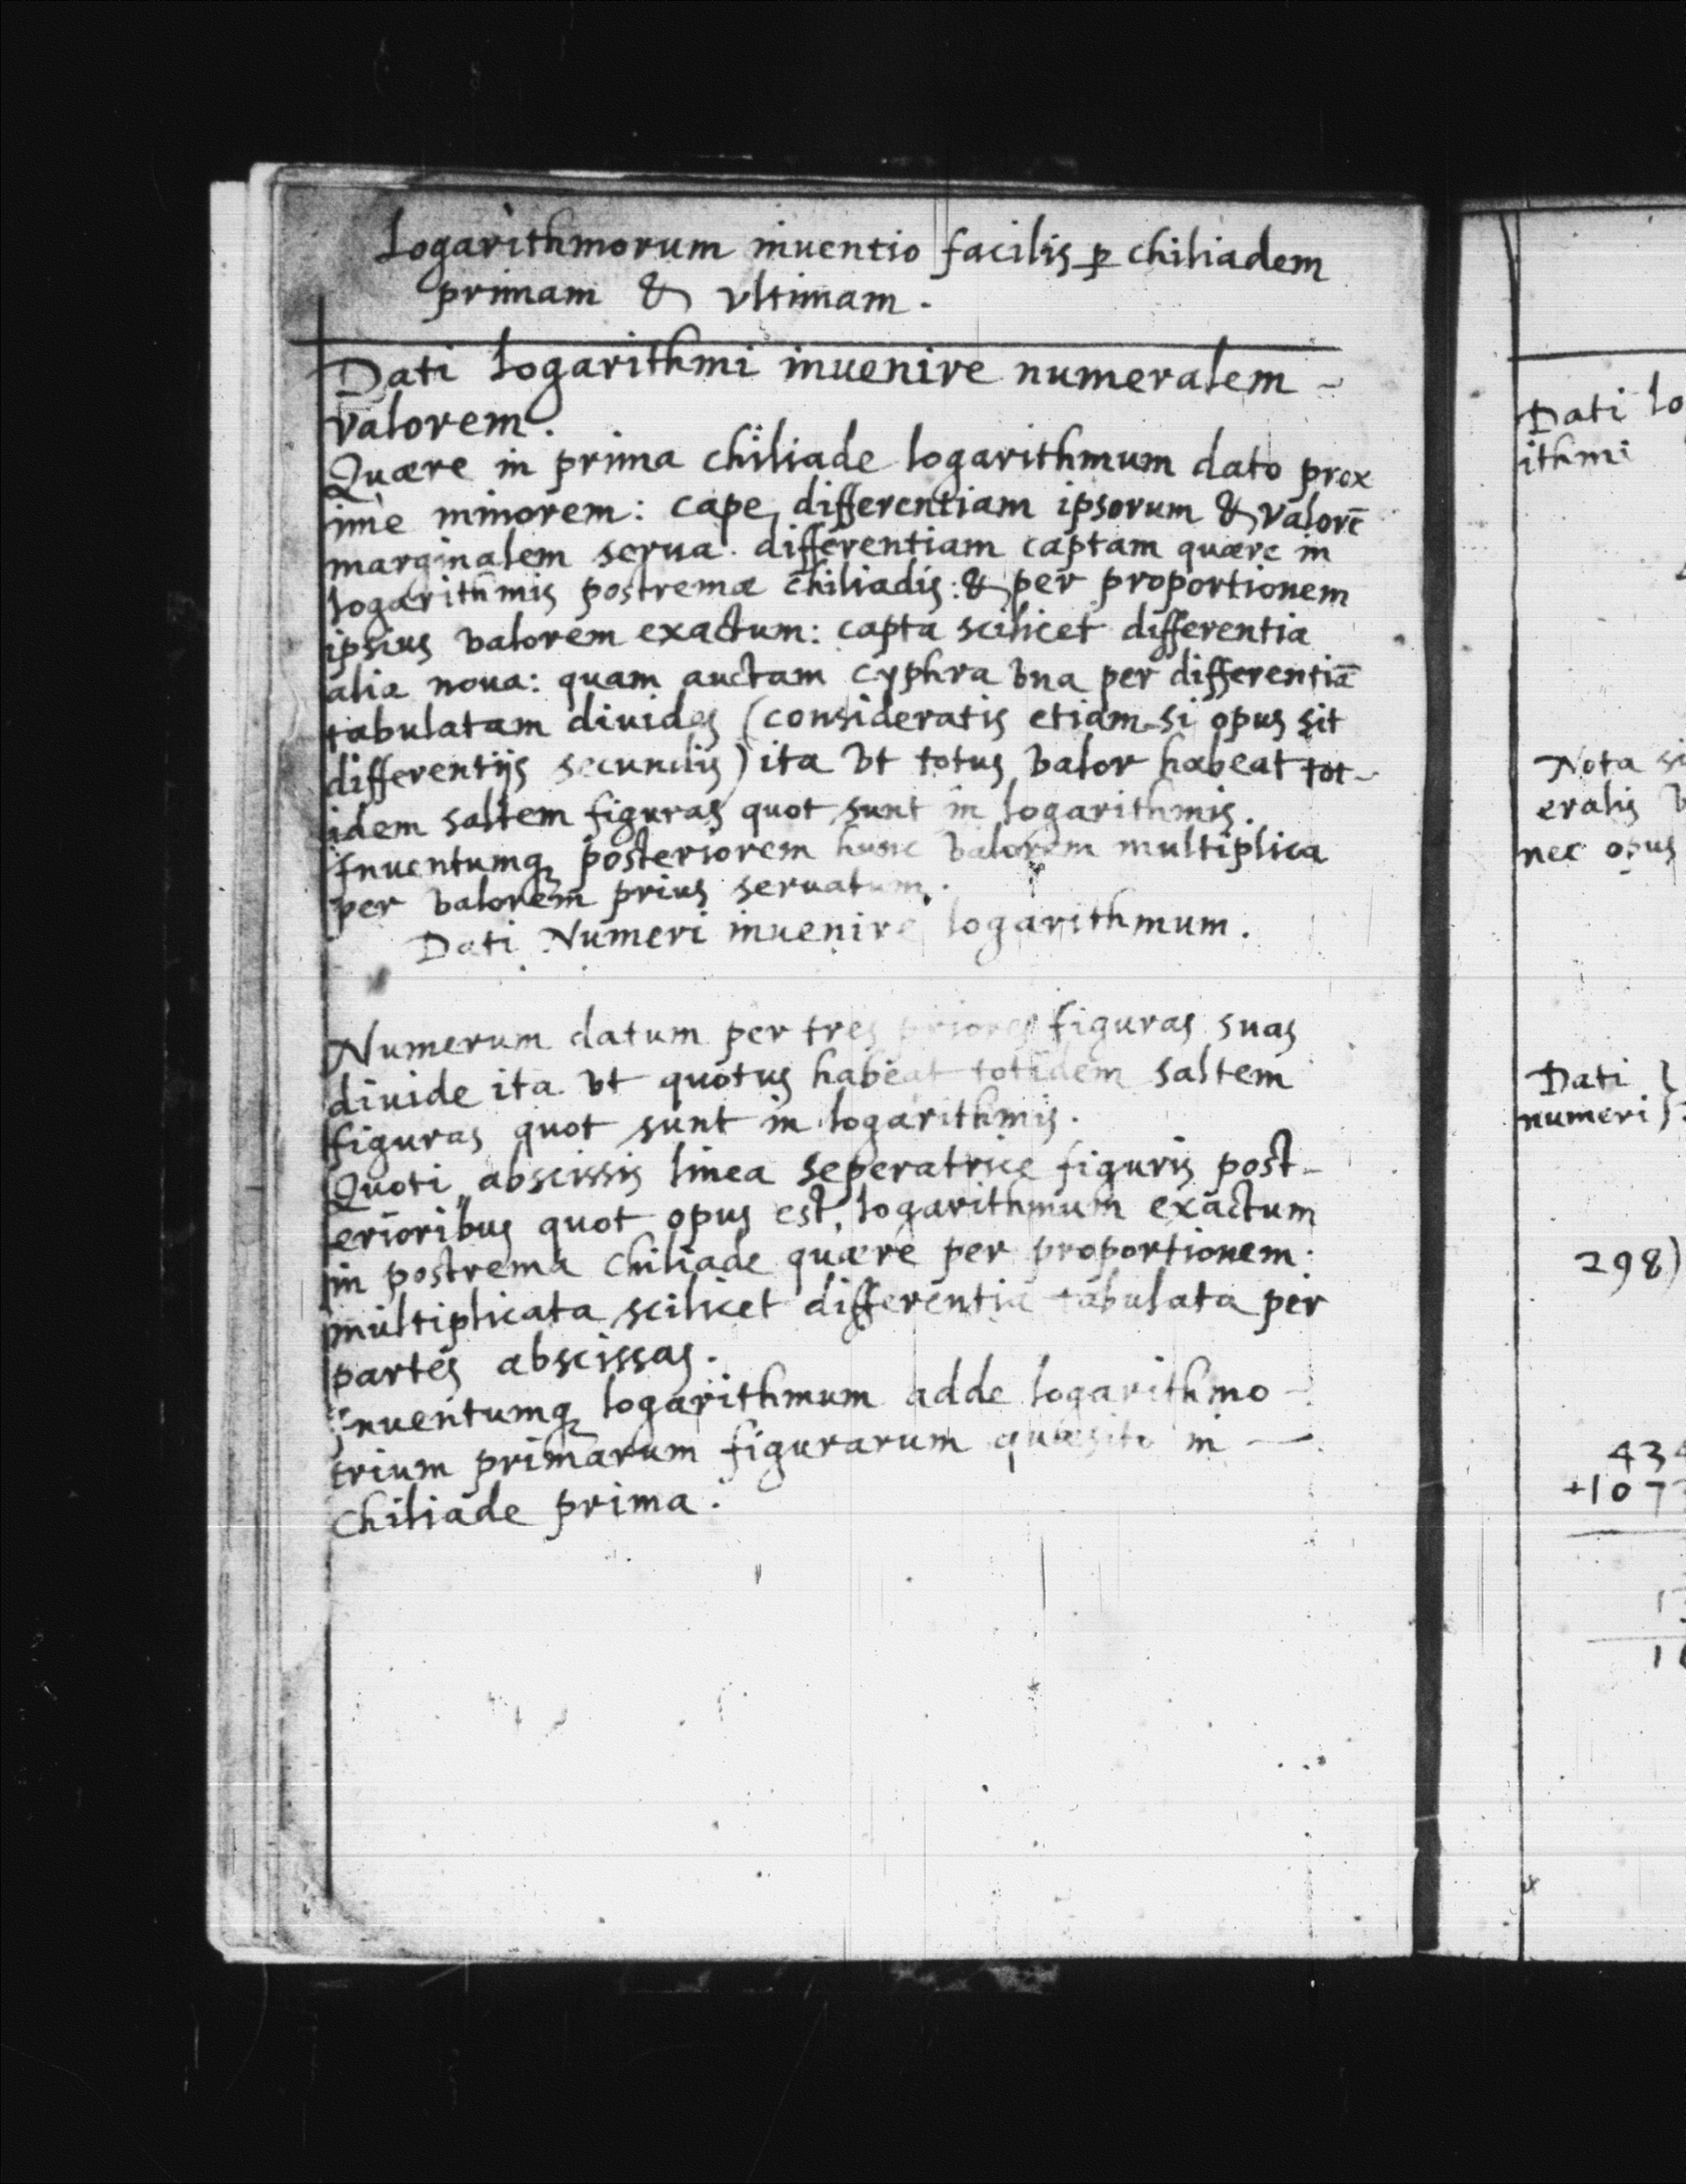 Logarithmorum inuentio facilis ꝑ chiliadem
primam & vltimam.
Dati logarithmi inuenire numeralem -
valorem.
Quære in prima chiliade logarithmum dato prox
imè minorem: cape differentiam ipsorum & valorē
marginalem serua. differentiam captam quære in
logarithmis postremæ chiliadis: & per proportionem
ipsius valorem exactum: capta scilicet differentia
alia noua: quam auctam cyphra vna per differentiā
tabulatam diuides (consideratis etiam si opus sit
differentijs secundis) ita vt totus valor habeat tot-
idem saltem figuras quot sunt in logarithmis.
Inuentumq posteriorem hunc valorem multiplica
per valorem prius seruatum.
Dati Numeri inuenire logarithmum.
Numerum datum per tres priores figuras suas
diuide ita vt quotus habeat totidem saltem
figuras quot sunt in logarithmis.
Quoti abscissis linea seperatrice figuris post-
erioribus quot opus est, logarithmum exactum
in postrema chiliade quære per proportionem:
multiplicata scilicet differentia tabulata per
partes abscissas.
Inuentumq logarithmum adde logarithmo -
trium primarum figurarum quæsito in —
chiliade prima.
Dati lo
ithmi
Nota si
eralis v
nec opus
Dati }
numeri }
298)
434
+107